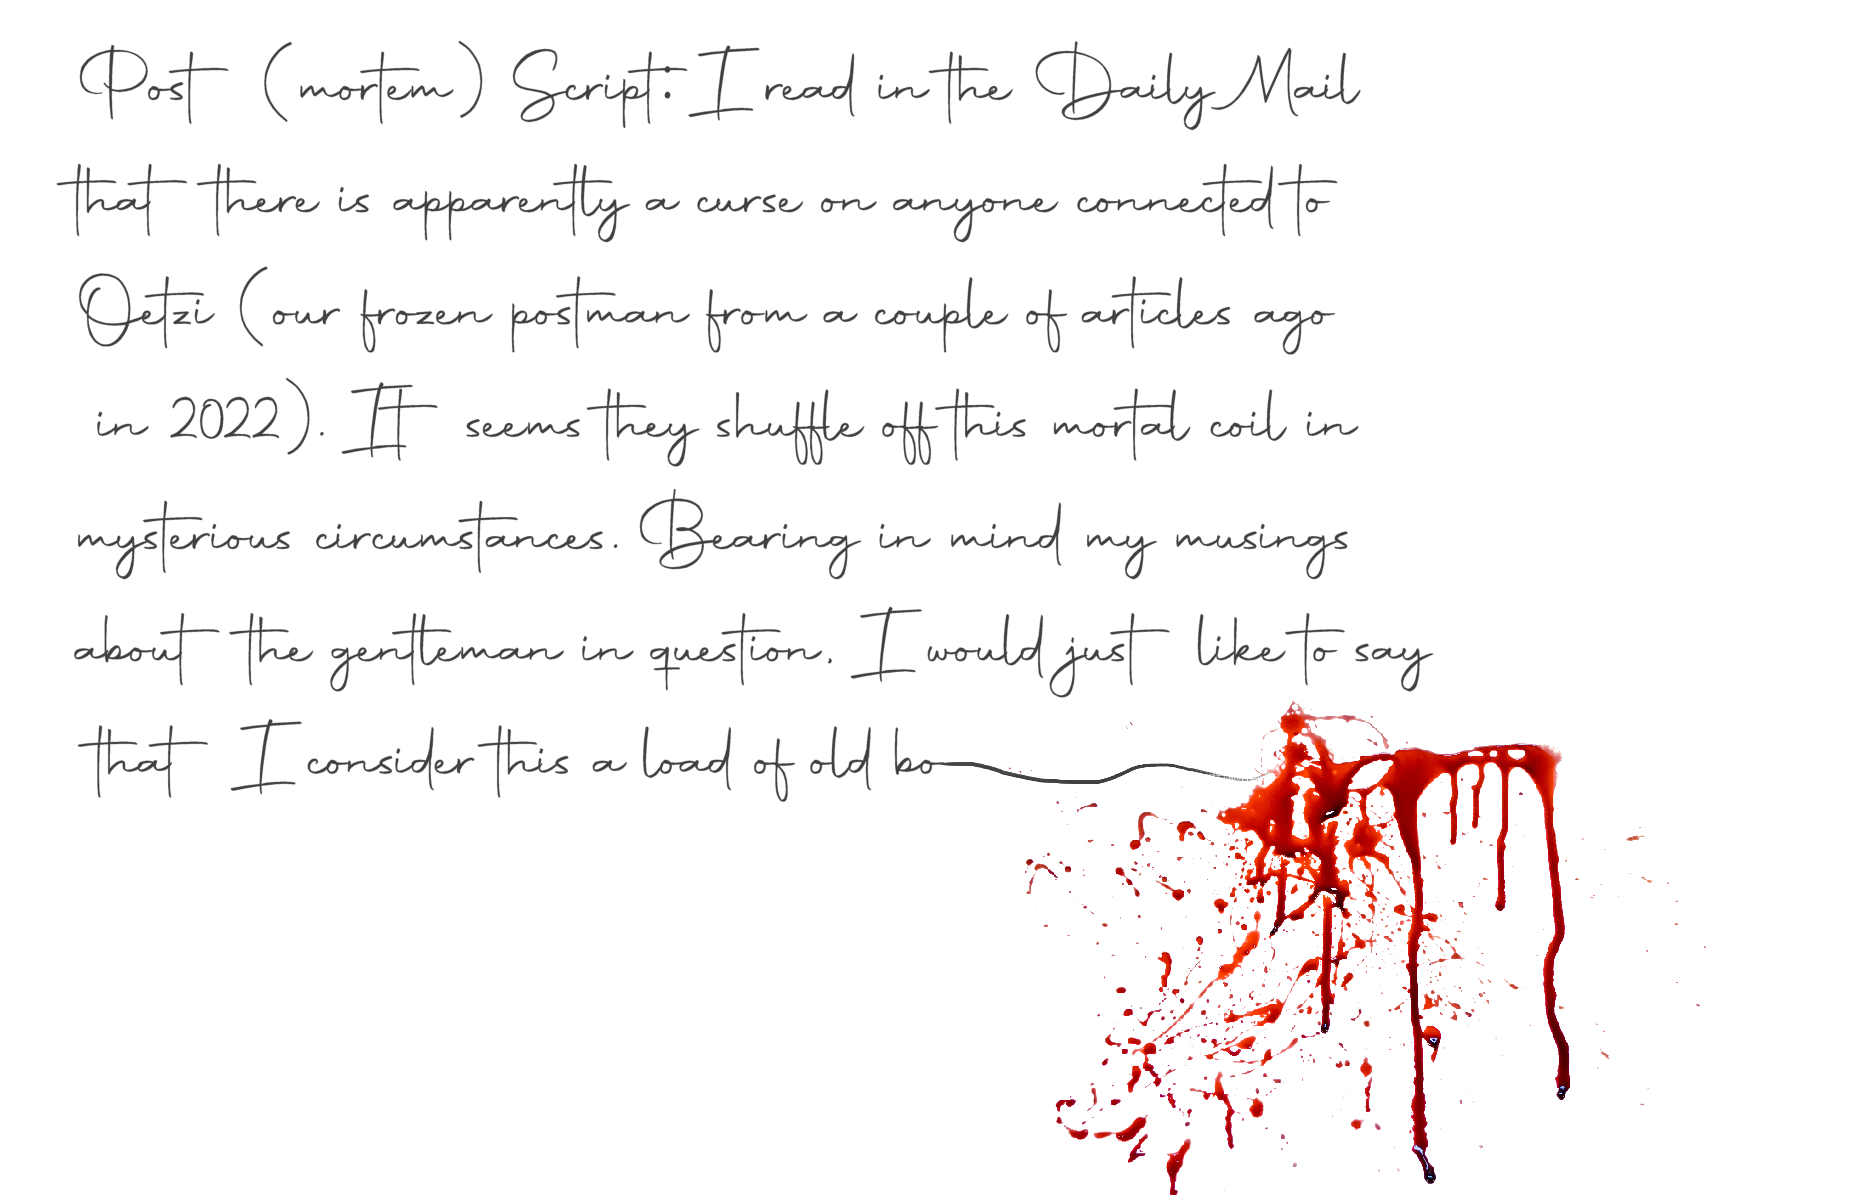 Post (mortem) Script: I read in the Daily Mail
that there is apparently a curse on anyone connected to
Oetzi (our frozen postman from a couple of articles ago
in 2022). It seems they shuffle off this mortal coil in
mysterious circumstances. Bearing in mind my musings
about the gentleman in question. I would just like to say
that I consider this a load of old bo